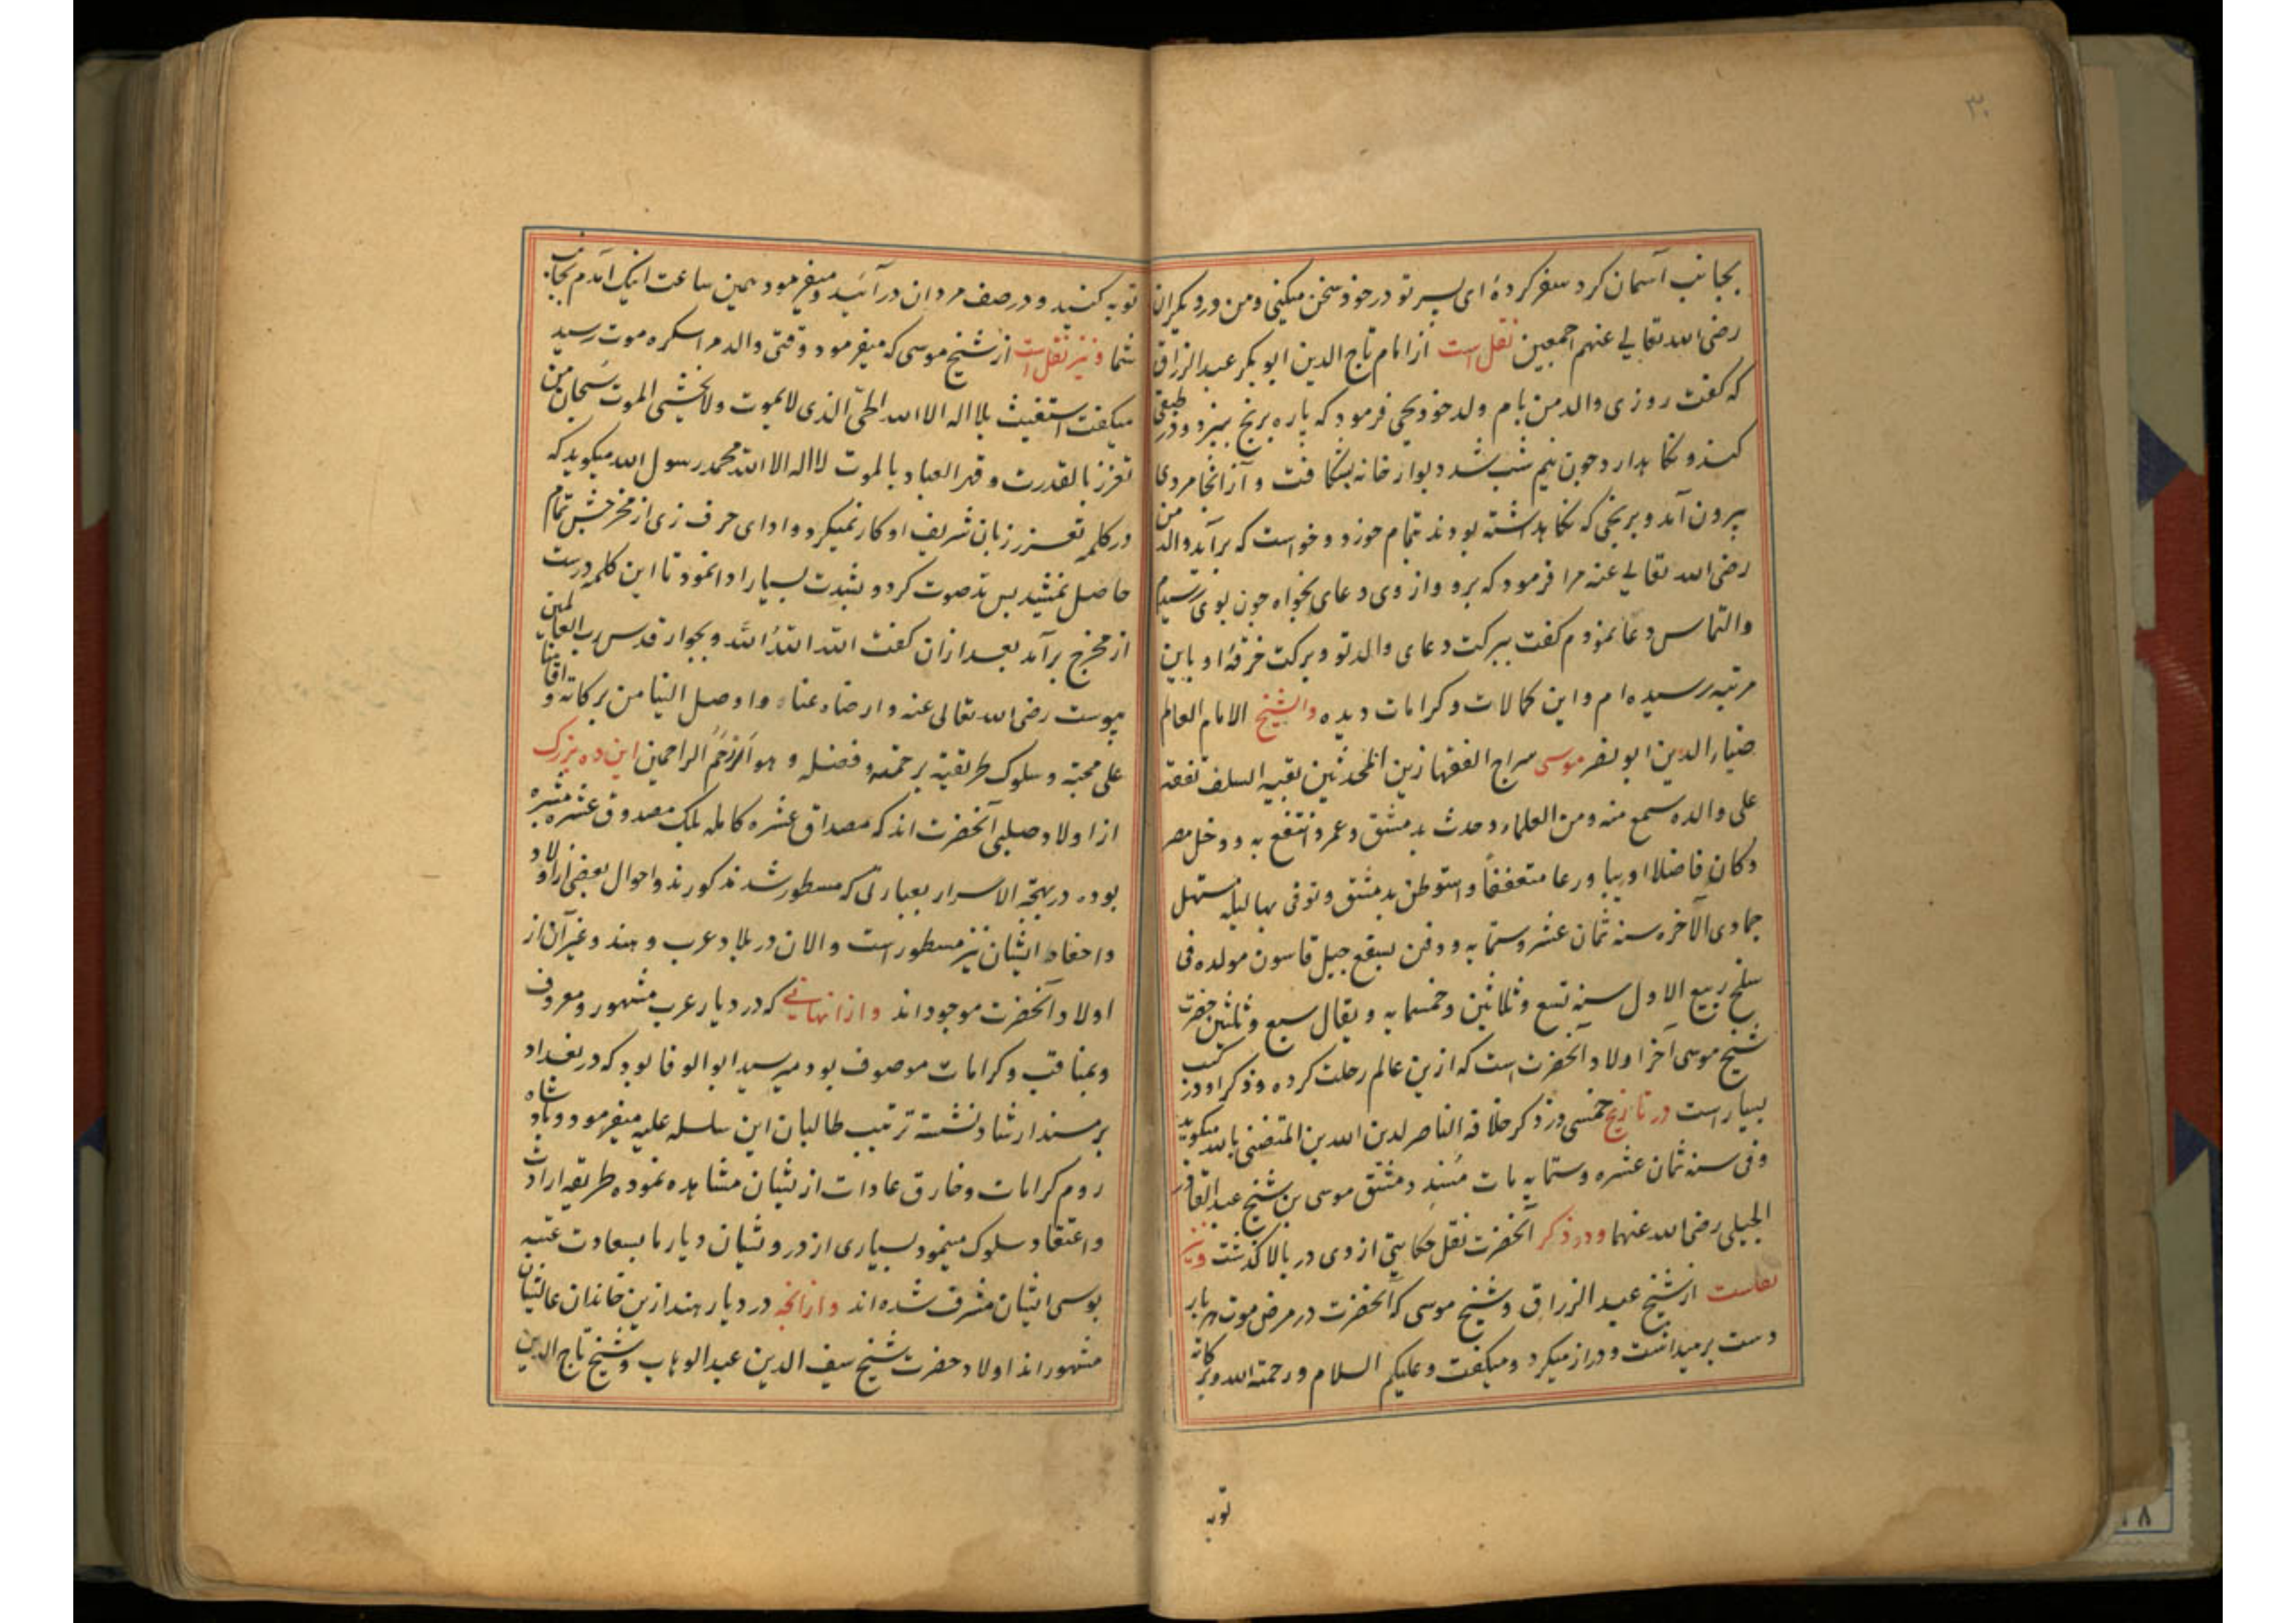 ۳۰
بجانب آسمان کرد سفر کردهٔ ای پسر تو در خود سخن میکنی و من در دیکران
رضی الله تعالی عنهم اجمعین نقل است از امام تاج الدین ابو بکر عبد الرزاق
که کفت روزی والد من بام ولد خود یحیی فرمود که پاره برنج بپزد و در طبقی
کند و نکاهدارد چون نیم شب شد دیوار خانه بشکافت و از انجا مردی
بیرون آمد و برنجی که نکاهداشته بودند تمام خورد و خواست که برآید والد من
رضی الله تعالی عنه مرا فرمود که برو و از وی دعای بخواه چون بوی رسیدم
والتماس دعا نمودم کفت ببرکت دعای والد تو و برکت خرقهٔ او باین
مرتبه رسیده ام و این کمالات و کرامات دیده والشیخ الامام العالم
ضیاء الدین ابو نصر موسی سراج الفقها زین المحدثین بقیه السلف تفقه
علی والده سمع منه ومن العلماء وحدث بدمشق وعمر وانتفع به ودخل مصر
وکان فاضلا ادیبا ورعا متعففاً واستوطن بدمشق وتوفی بها لیلة مستهل
جمادی الآخره سنه ثمان عشر وستمایه ودفن بسفح جبل قاسون مولده فی
سلخ ربیع الاول سنه تسع وثلاثین وخمسمایه ویقال سبع وثلثین حضرت
شیخ موسی آخر اولاد آنحضرت است که ازین عالم رحلت کرده و ذکر او در کتب
بسیار است در تاریخ خمسی در ذکر خلافه الناصر لدین الله بن المتضئی بالله میکوید
وفی سنه ثمان عشره وستمایه مات مُسنِد دمشق موسی بن شیخ عبد القادر
الجیلی رضی الله عنهما و در ذکر آنحضرت نقل حکایتی از وی در بالا کذشت ونیز
نقلست از شیخ عبد الرزاق و شیخ موسی که آنحضرت در مرض موت هر بار
دست برمیداشت و دراز میکرد و میکفت وعلیکم السلام ورحمة الله وبرکاته
توبه
توبه کنید و در صف مردان در آئید و میفرمود همین ساعت اینک آمدم بجانب
شما ونیز نقل است از شیخ موسی که میفرمود وقتی والد مرا سکره موت رسید
میکفت استغیث بلا اله الا الله الحیّ الذی لا یموت ولا یخشی الموت سبحان من
تعزز بالقدرت وقهر العباد بالموت لا اله الا الله محمد رسول الله میکوید که
در کلمه تعزز زبان شریف او کار نمیکرد و ادای حرف زی از مخرجش تمام
حاصل نمیشد پس تد صوت کرد و بشدت بسیار ادا نمود تا این کلمه درست
از مخرج برآمد بعد ازان کفت الله اللهُ الله و بجوار قدس رب العالمین
پیوست رضی الله تعالی عنه وارضاه عنا واوصل الینا من برکاته واقامنا
علی محبته وسلوک طریقته برحمته وفضله وهو اَرْحَمُ الراحمین این ده بزرک
از اولاد صلبی آنحضرت اند که مصداق عشره کامله بلک مصدوق عشره مبشره
بوده در بهجة الاسرار بعبارتی که مسطور شد مذکورند و احوال بعضی از اولاد
و احفاد ایشان نیز مسطور است والان در بلاد عرب و هند و غیر آن از
اولاد آنحضرت موجود اند وازانهایے که در دیار عرب مشهور و معروف
و بمناقب و کرامات موصوف بود میر سید ابو الوفا بود که در بغداد
بر مسند ارشاد نشسته ترتیب طالبان این سلسله علیه میفرمود و پادشاه
روم کرامات و خارق عادات از یشان مشاهده نموده طریقه ارادت
و اعتقاد سلوک مینمود بسیاری از درویشان دیار ما بسعادت عتبه
بوسی ایشان مشرف شده اند وازانجه در دیار هند ازین خاندان عالیشان
مشهور اند اولاد حضرت شیخ سیف الدین عبد الوهاب و شیخ تاج الدین